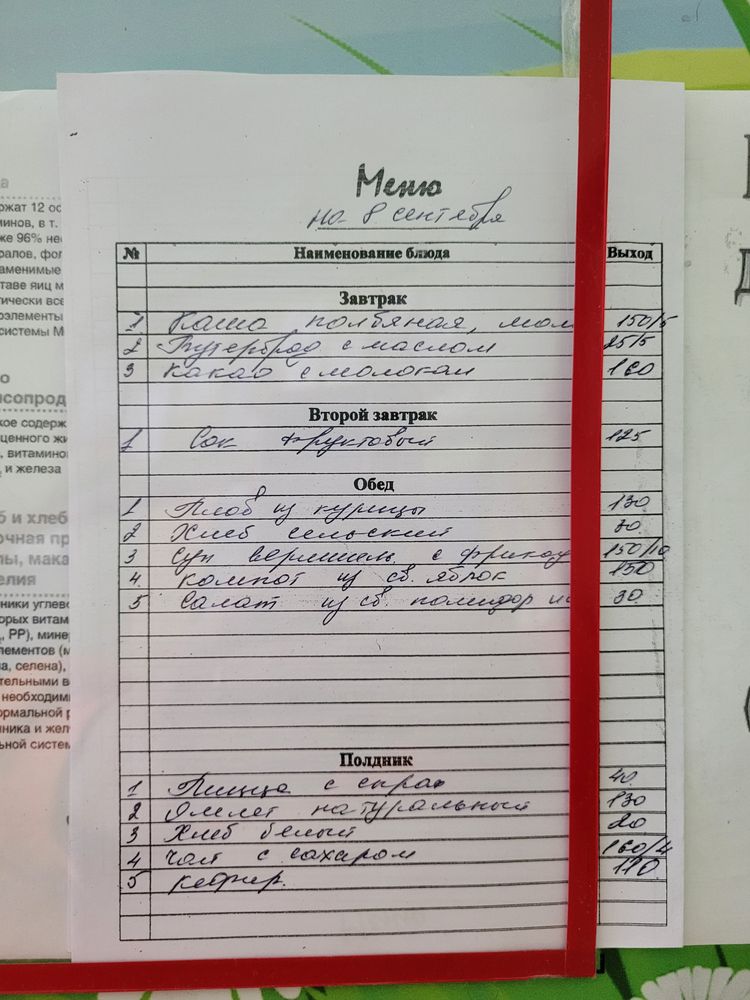 Меню
на 8 сентября
№ Наименование блюда Выход
Завтрак
1 Каша полбяная, мол 150/5
2 Бутерброд с маслом 25/5
3 Какао с молоком 160
Второй завтрак
1 Сок фруктовый 125
Обед
1 Плов из курицы 130
2 Хлеб сельский 30
3 Суп вермишель с фрикад 150/10
4 Компот из св. яблок 150
5 Салат из св. помидор и 30
Полдник
1 Пицца с сыром 40
2 Омлет натуральный 130
3 Хлеб белый 20
4 Чай с сахаром 160/4
5 Кефир. 110
ржат 12 ос
минов, в т.
же 96% не
ралов, фол
заменимые
ставе яиц м
гически вс
роэлементы
системы М
о
ясопрод
кое содерж
ценного жи
, витамино
и железа
б и хлеб
очная пр
пы, мака
елия
ники углево
орых витам
, РР), мине
лементов (м
на, селена),
тельными в
необходимы
ормальной р
ника и жел
ьной систем